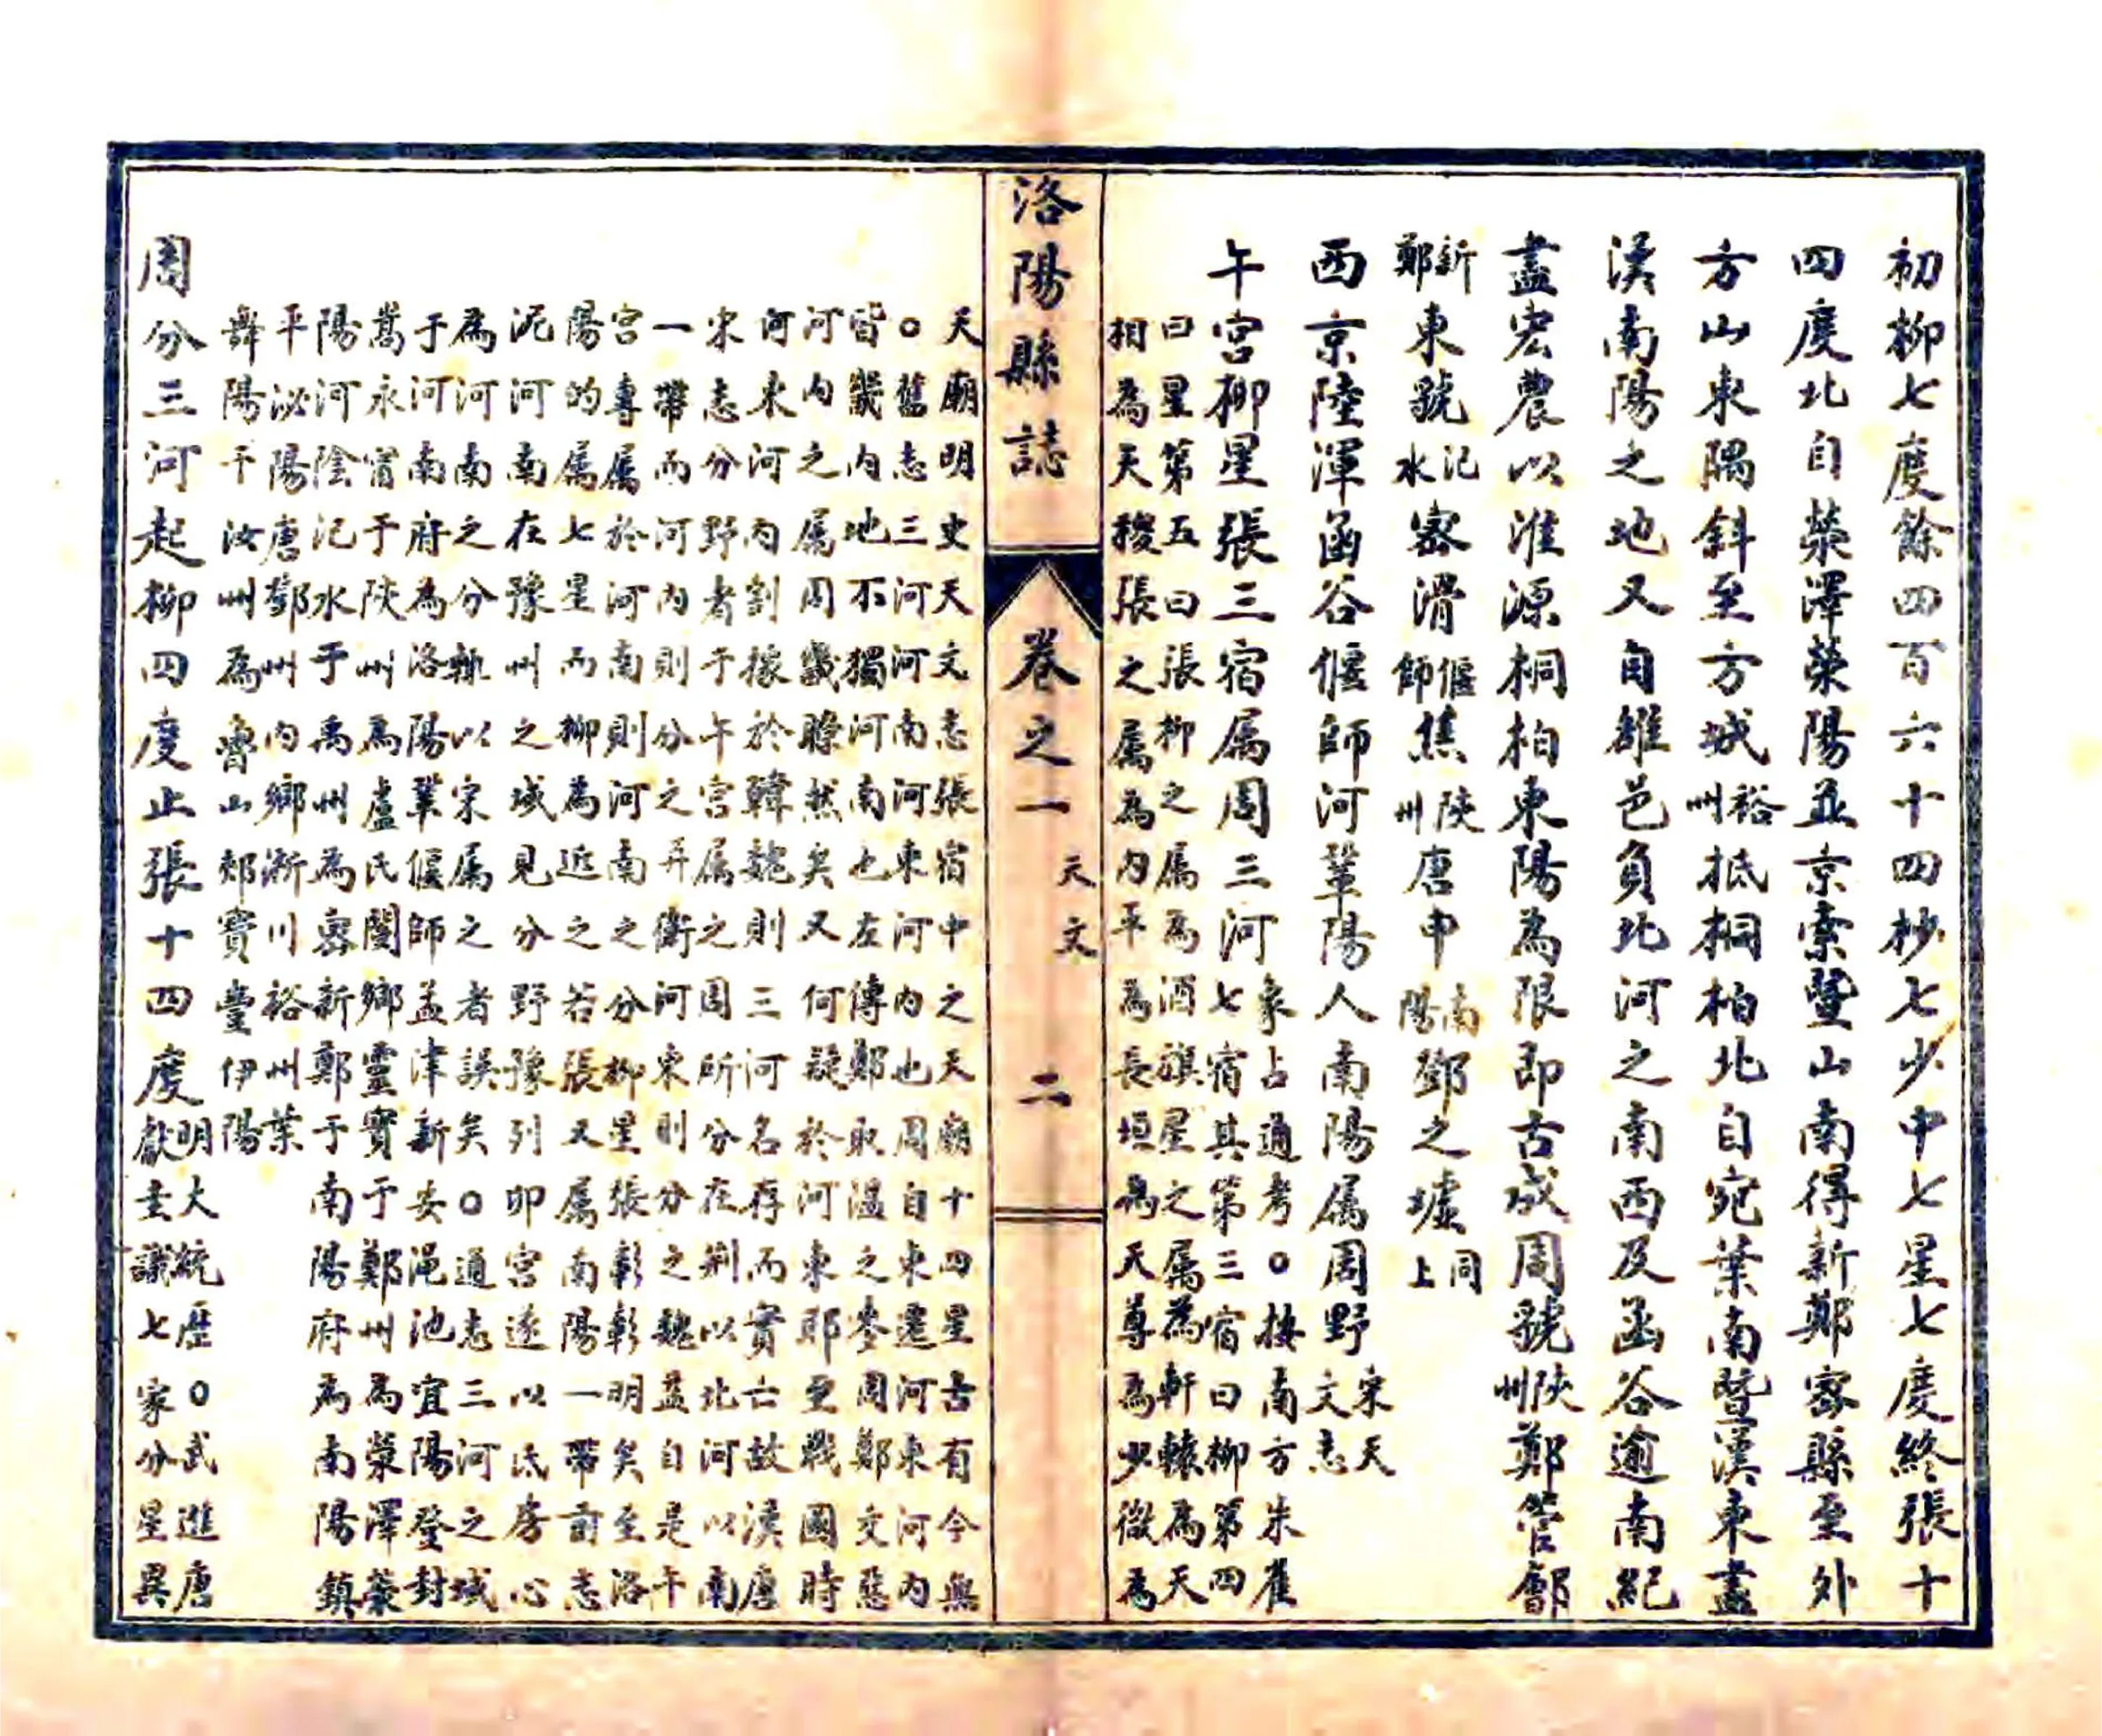 初柳七度餘四百六十四杪七少中七星七度終張十
四度北自滎澤滎陽並京索暨山南得新鄭密縣至外
方山東隅斜至方城裕州抵桐柏北自宛葉南暨漢東盡
漢南陽之地又自雒邑負北河之南西及函谷逾南紀
盡宏農以淮源桐柏東陽為限即古成周虢陝州鄭管鄶
新鄭東虢汜水密滑偃師焦陝州唐申南陽鄧之墟同上
西京陸渾函谷偃師河鞏陽人南陽属周野宋天文志
午宮柳星張三宿属周三河象占通考○按南方朱雀
七宿其第三宿曰柳第四
曰星第五曰張柳之属為酒旗星之属為軒轅為天
相為天稷張之属為內平為長垣為天尊為少微為
洛陽縣誌
卷之一
天文
二
天廟明史天文志張宿中之天廟十四星古有今無
○舊志三河河南河東河內也周自東遷河東河內
皆畿內地不獨河南也左傳鄭取溫之麥周鄭交惡
河內之属周畿瞭然矣又何疑於河東耶至戰國時
河東河內割據於韓魏則三河名存而實亡故漢唐
宋志分野者于午宮属之周所分在荆以北河以南
一帶而河內則分之并衛河東則分之魏益自是午
宮專属於河南則河南之分柳星張彰彰明矣至洛
陽的属七星而柳為近之若張又属南陽一帶前志
泥河南在豫州之域見分野豫列卯宮遂以氐房心
為河南之分輒以宋属之者誤矣○通志三河之域
于河南府為洛陽鞏偃師孟津新安澠池宜陽登封
嵩永甯于陝州為盧氏閿鄉靈寶于鄭州為滎澤滎
陽河陰汜水于禹州為密新鄭于南陽府為南陽鎮
平泌陽唐鄧州內鄉淅川裕州葉
舞陽于汝州為魯山郟寶豐伊陽
周分三河起柳四度止張十四度明大統歷○武進唐
獻圭議七家分星異